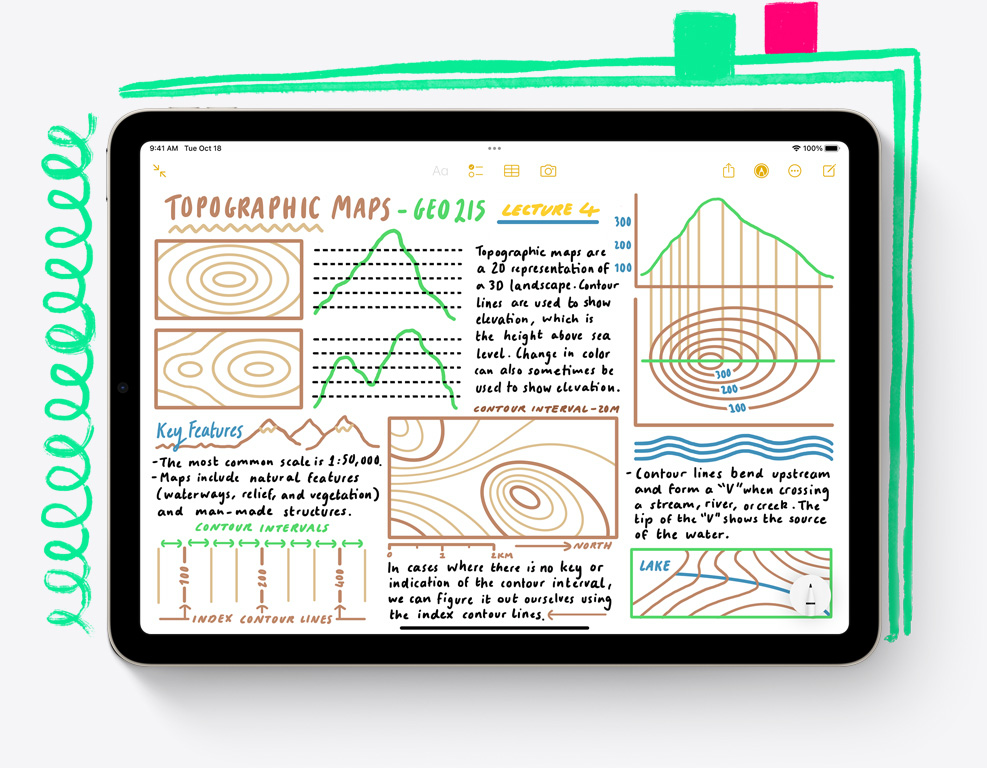 9:41 AM Tue Oct 18
100%
Aa
TOPOGRAPHIC MAPS - GEO 215 LECTURE 4
Topographic maps are
a 2D representation of
a 3D landscape. Contour
lines are used to show
elevation, which is
the height above sea
level. Change in color
can also sometimes be
used to show elevation.
CONTOUR INTERVAL-20M
300
200
100
300
200
100
Key Features
-The most common scale is 1:50,000.
-Maps include natural features
(waterways, relief, and vegetation)
and man-made structures.
CONTOUR INTERVALS
100
200
400
INDEX CONTOUR LINES
0 1 2KM NORTH
In cases where there is no key or
indication of the contour interval,
we can figure it out ourselves using
the index contour lines.
-Contour lines bend upstream
and form a "V" when crossing
a stream, river, or creek. The
tip of the "V" shows the source
of the water.
LAKE